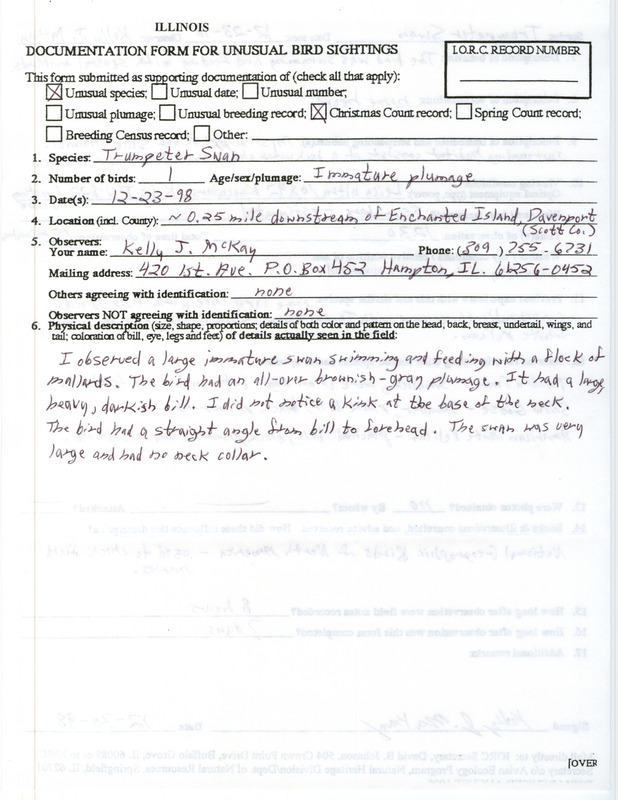 ILLINOIS
DOCUMENTATION FORM FOR UNUSUAL BIRD SIGHTINGS
I.O.R.C. RECORD NUMBER
This form submitted as supporting documentation of (check all that apply):
Unusual species; Unusual date; Unusual number;
Unusual plumage; Unusual breeding record; Christmas Count record; Spring Count record;
Breeding Census record; Other:
1. Species: Trumpeter Swan
2. Number of birds: 1 Age/sex/plumage: Immature plumage
3. Date(s): 12-23-98
4. Location (incl. County): ~ 0.25 mile downstream of Enchanted Island, Davenport
(Scott Co.)
5. Observers:
Your name: Kelly J. McKay Phone: (309) 755-6731
Mailing address: 420 1st. Ave. P.O. Box 452 Hampton, IL. 61256-0452
Others agreeing with identification: none
Observers NOT agreeing with identification: none
6. Physical description (size, shape, proportions; details of both color and pattern on the head, back, breast, undertail, wings, and
tail; coloration of bill, eye, legs and feet) of details actually seen in the field:
I observed a large immature swan swimming and feeding with a flock of
mallards. The bird had an all-over brownish-gray plumage. It had a large,
heavy, darkish bill. I did not notice a kink at the base of the neck.
The bird had a straight angle from bill to forehead. The swan was very
large and had no neck collar.
[OVER